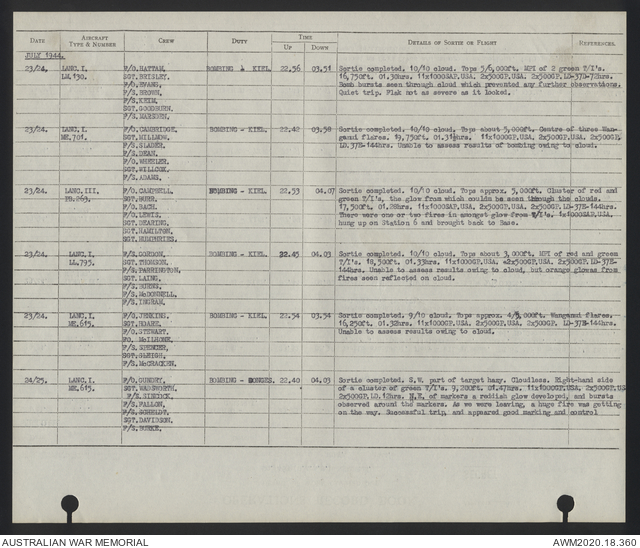 DATE AIRCRAFT TYPE & NUMBER CREW DUTY TIME UP DOWN DETAILS OF SORTIE OR FLIGHT REFERENCES.
JULY 1944.
23/24. LANC. I. F/O. HATTAM. BOMBING & KIEL. 22.56 03.51 Sortie completed. 10/10 cloud. Tops 5/6,000ft. MPI of 2 green T/I's.
LM.130. SGT. BRISLEY. 16,750ft. 01.30hrs. 11x1000SAP.USA. 2x500GP.USA. 2x500GP.LD-37B-72hrs.
P/O. EVANS. Bomb bursts seen through cloud which prevented any further observations.
F/S. BROWN. Quiet trip. Flak not as severe as it looked.
F/S. KEIM.
SGT. GOODBURN.
F/S. MARSDEN.
23/24. LANC. I. F/O. CAMBRIDGE. BOMBING - KIEL. 22.42 03.58 Sortie completed. 10/10 cloud. Tops about 5,000ft. Centre of three Wan-
ME.701. SGT. WILLMON. ganui flares. 19,750ft. 01.31½hrs. 11x1000GP.USA. 2x500GP.USA. 2x500GP.
F/S. SLADER. LD.37E-144hrs. Unable to assess results of bombing owing to cloud.
F/S. DEAN.
F/O. WHEELER.
SGT. WILLCOX.
F/S. ADAMS.
23/24. LANC. III. F/O. CAMPBELL. BOMBING - KIEL. 22.53 04.07 Sortie completed. 10/10 cloud. Tops approx. 5,000ft. Cluster of red and
PB.263. SGT. BURR. green T/I's, the glow from which could be seen through the clouds.
F/O. BACH. 17,500ft. 01.28hrs. 11x1000GP.USA. 2x500GP.USA. 2x500GP.LD-37E-144hrs.
F/O. LEWIS. There were one or two fires in amongst glow from T/I's. 1x1000GP.USA.
SGT. DEARING. hung up on Station 6 and brought back to Base.
SGT. HAMILTON.
SGT. HUMPHRIES.
23/24. LANC. I. F/S. GORDON. BOMBING - KIEL. 22.45 04.03 Sortie completed. 10/10 cloud. Tops about 3,000ft. MPI of red and green
LL.795. SGT. THOMSON. T/I's. 18,500ft. 01.33hrs. 11x1000GP.USA. 2x500GP.USA. 2x500GP.LD-37E-
F/S. FARRINGTON. 144hrs. Unable to assess results owing to cloud, but orange glows from
SGT. LAING. fires seen reflected on cloud.
F/S. BURNS.
F/S. McDONNELL.
F/S. INGRAM.
23/24. LANC. I. F/O. JENKINS. BOMBING - KIEL. 22.54 03.54 Sortie completed. 9/10 cloud. Tops approx. 4/5,000ft. Wanganui flares.
ME.615. SGT. HOARE. 16,250ft. 01.32hrs. 11x1000GP.USA. 2x500GP.USA. 2x500GP.LD-37E-144hrs.
F/O. STEWART. Unable to assess results owing to cloud.
FO. McILHONE.
F/S. SPENCER.
SGT. GLEIGH.
F/S. McCRACKEN.
24/25. LANC. I. F/O. GUNDRY. BOMBING - DONGES. 22.40 04.03 Sortie completed. S.W. part of target hazy. Cloudless. Right-hand side
ME.615. SGT. WADWORTH. of a cluster of green T/I's. 9,200ft. 01.47hrs. 11x1000GP.USA. 2x500GP.US
F/S. 2x500GP.LD.12hrs. N.E. of markers a reddish glow developed, and bursts
F/S. FALLON. observed around the markers. As we were leaving, a huge fire was getting
F/S. SCHOLDT. on the way. Successful trip, and appeared good marking and control
SGT. DAVIDSON.
F/S. BURKE.
AUSTRALIAN WAR MEMORIAL AWM2020.18.360